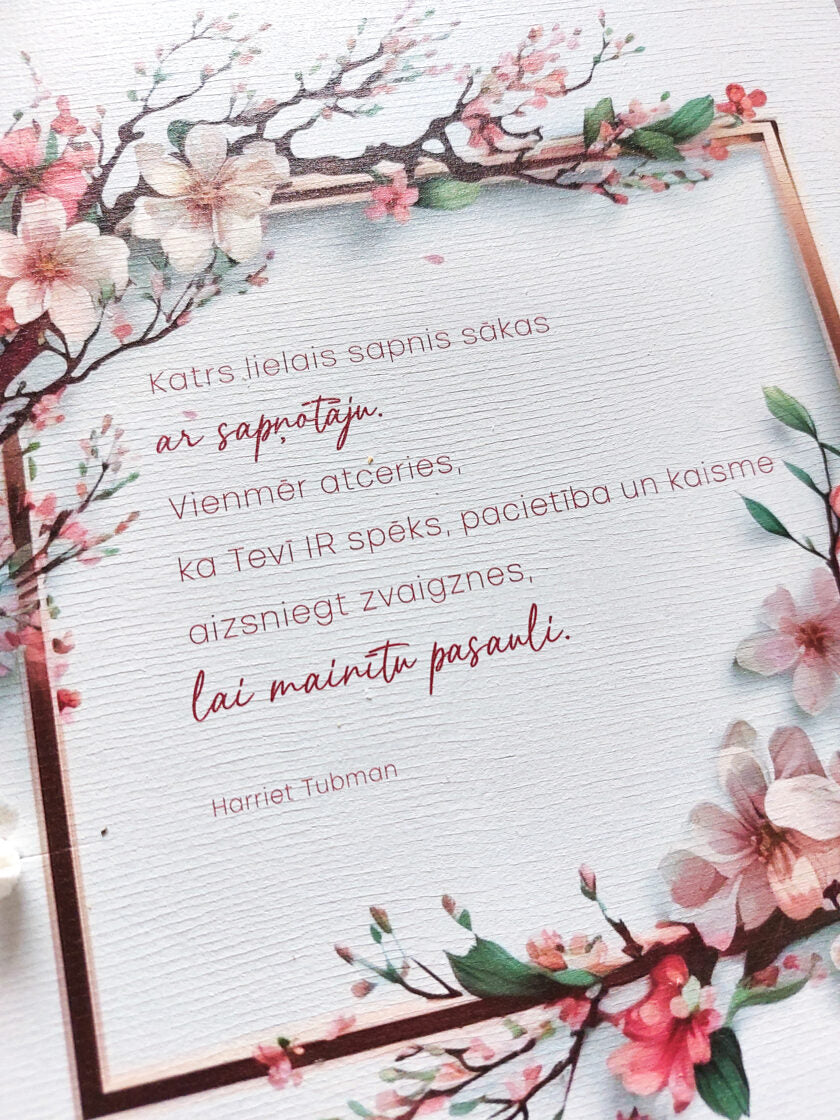 Katrs lielais sapnis sākas
ar sapņotāju.
Vienmēr atceries,
ka Tevī IR spēks, pacietība un kaisme
aizsniegt zvaigznes,
lai mainītu pasauli.
Harriet Tubman